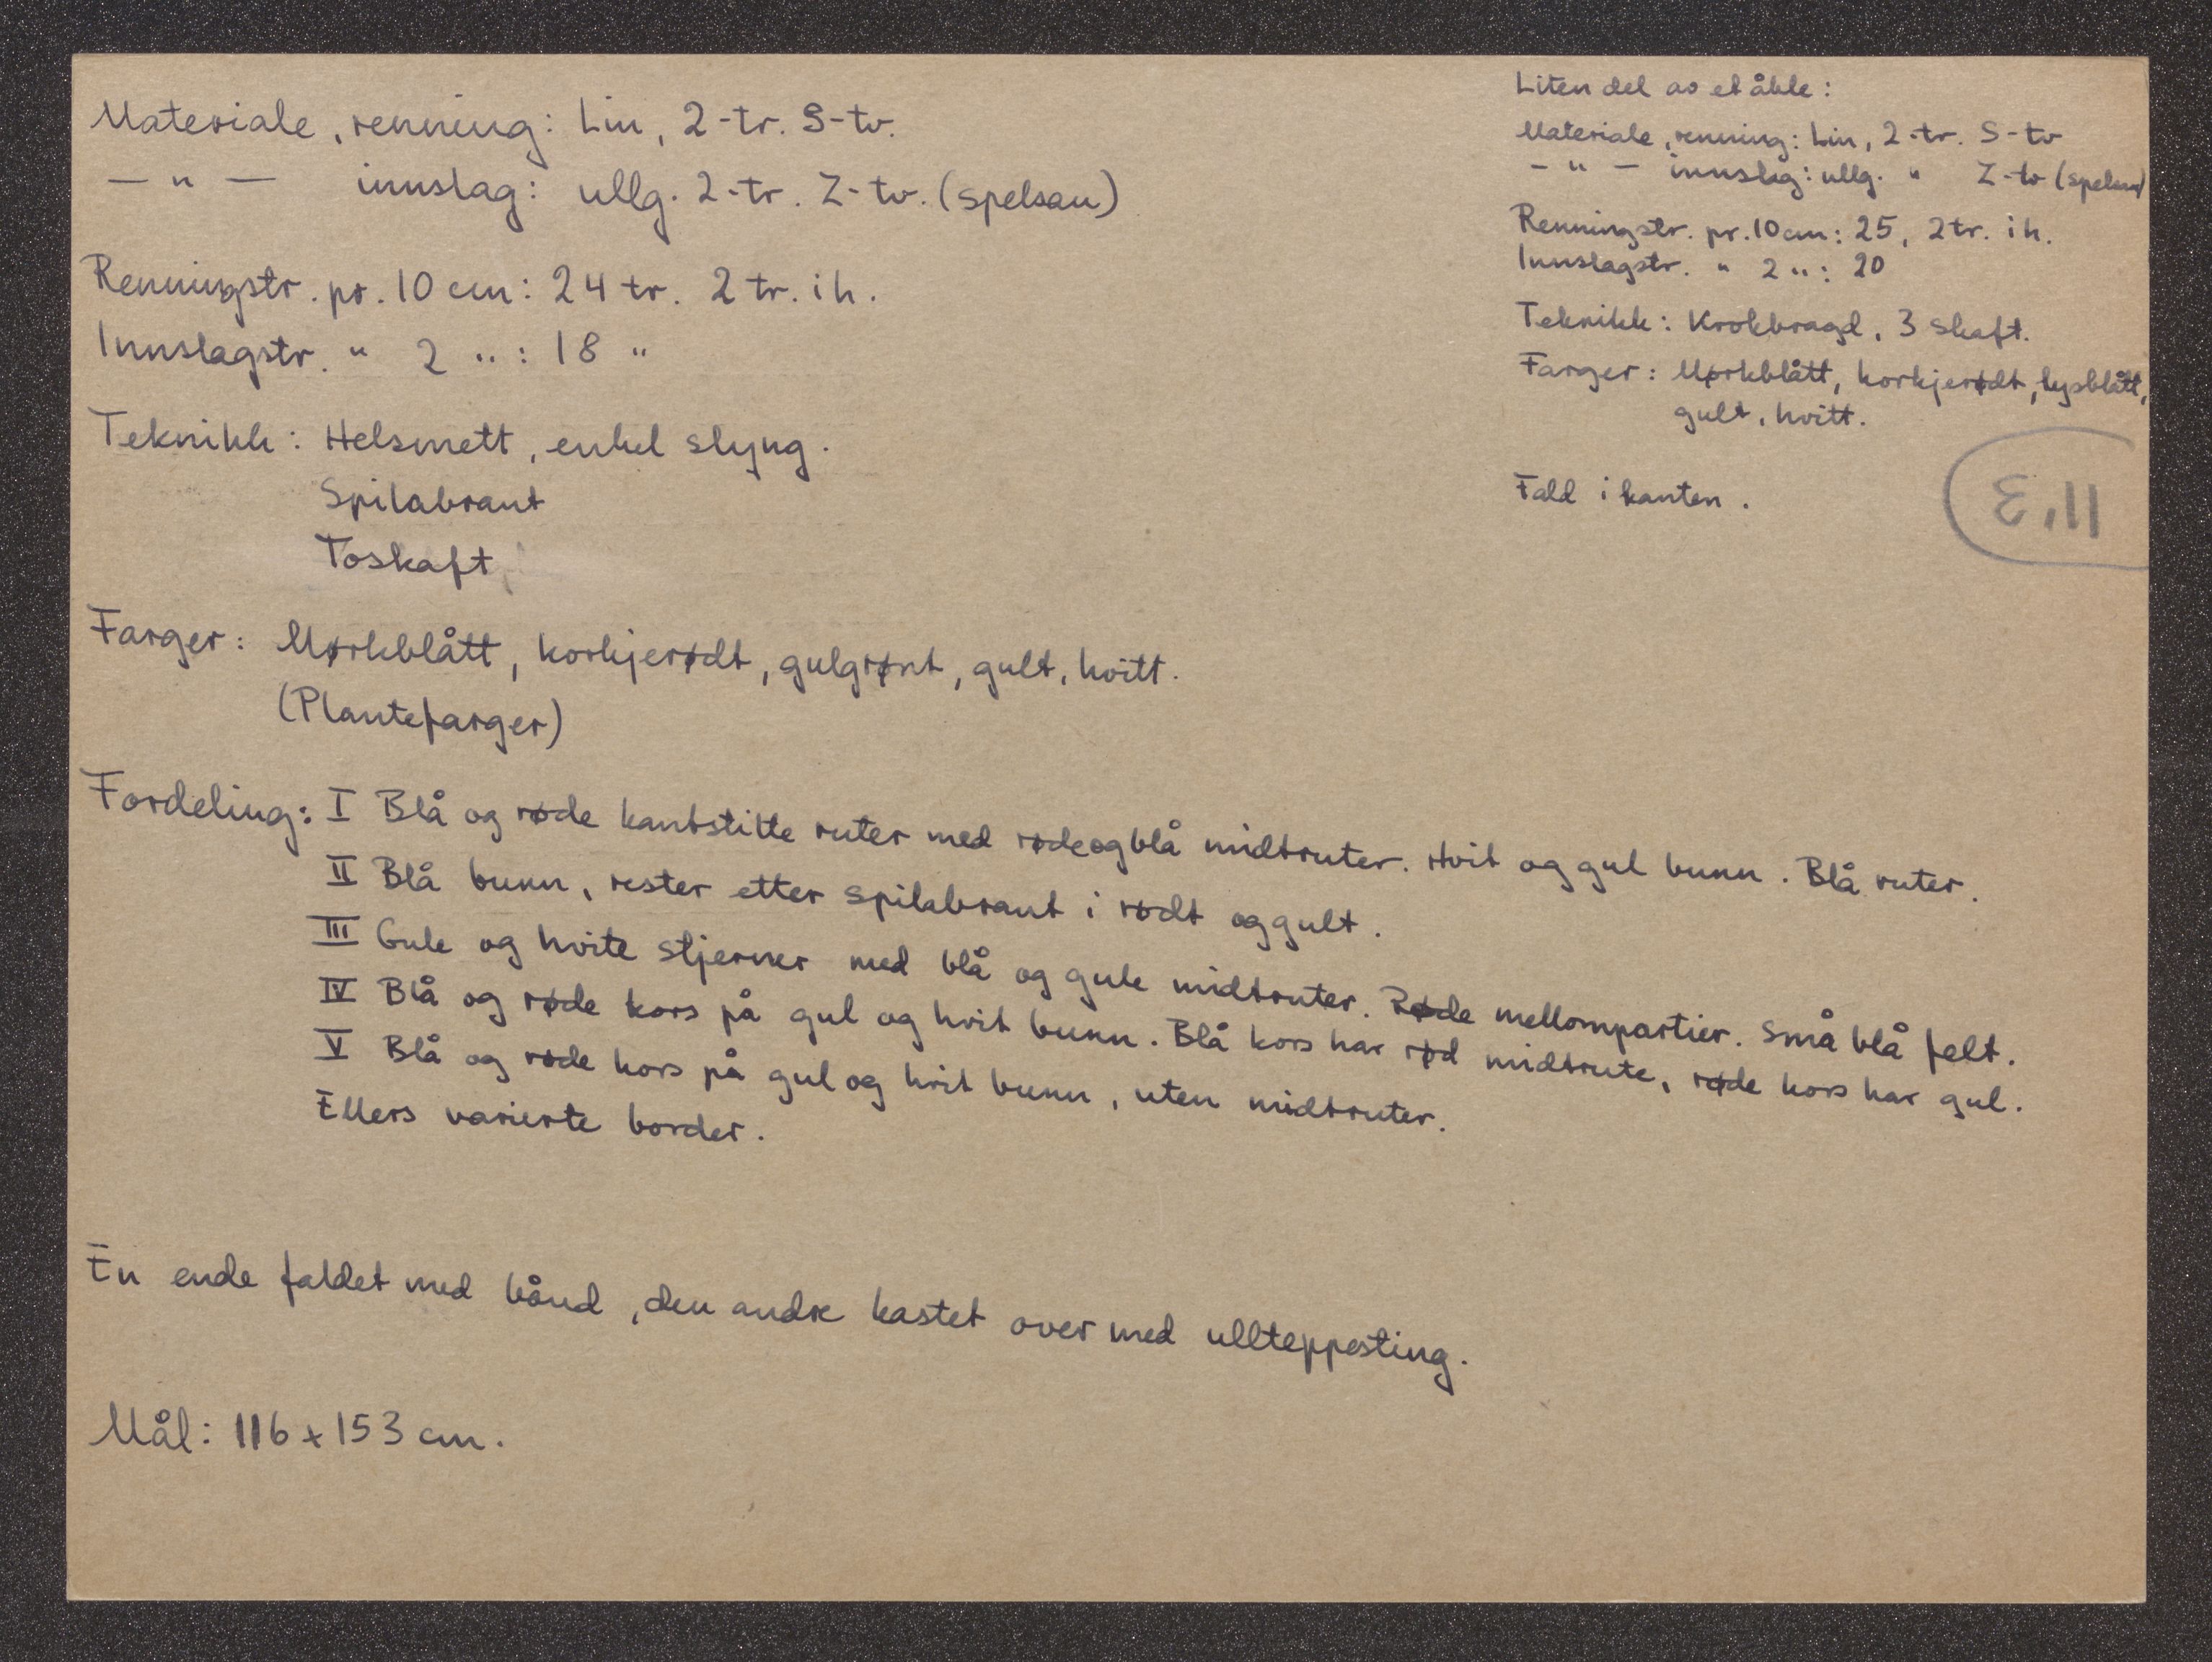 Materiale, renning: Lin, 2-tr. S-tv.
— " — innslag: ullg. 2-tr. Z-tv. (spelsau)
Renningstr. pr. 10 cm: 24 tr. 2 tr. i h.
Innslagstr. " 2 " : 18 "
Teknikk: Helsmett, enkel slyng.
Spilabraut
Toskaft
Farger: Mørkblått, korkjerødt, gulgrønt, gult, hvitt.
(Plantefarger)
Fordeling: I Blå og røde kantstilte ruter med røde og blå midtruter. Hvit og gul bunn. Blå ruter.
II Blå bunn, rester etter spilabraut i rødt og gult.
III Gule og hvite stjerner med blå og gule midtruter. Røde mellompartier. Små blå felt.
IV Blå og røde kors på gul og hvit bunn. Blå kors har rød midtrute, røde kors har gul.
V Blå og røde kors på gul og hvit bunn, uten midtruter.
Ellers varierte border.
En ende faldet med bånd, den andre kastet over med ullteppesting.
Mål: 116 x 153 cm.
Liten del av et åkle:
Materiale, renning: Lin, 2-tr. S-tv
— " — innslag: ullg. " Z-tv (spelsau)
Renningstr. pr. 10 cm: 25, 2 tr. i h.
Innslagstr. " 2 " : 20
Teknikk: Krokbragd, 3 skaft.
Farger: Mørkblått, korkjerødt, lysblått,
gult, hvitt.
Fald i kanten.